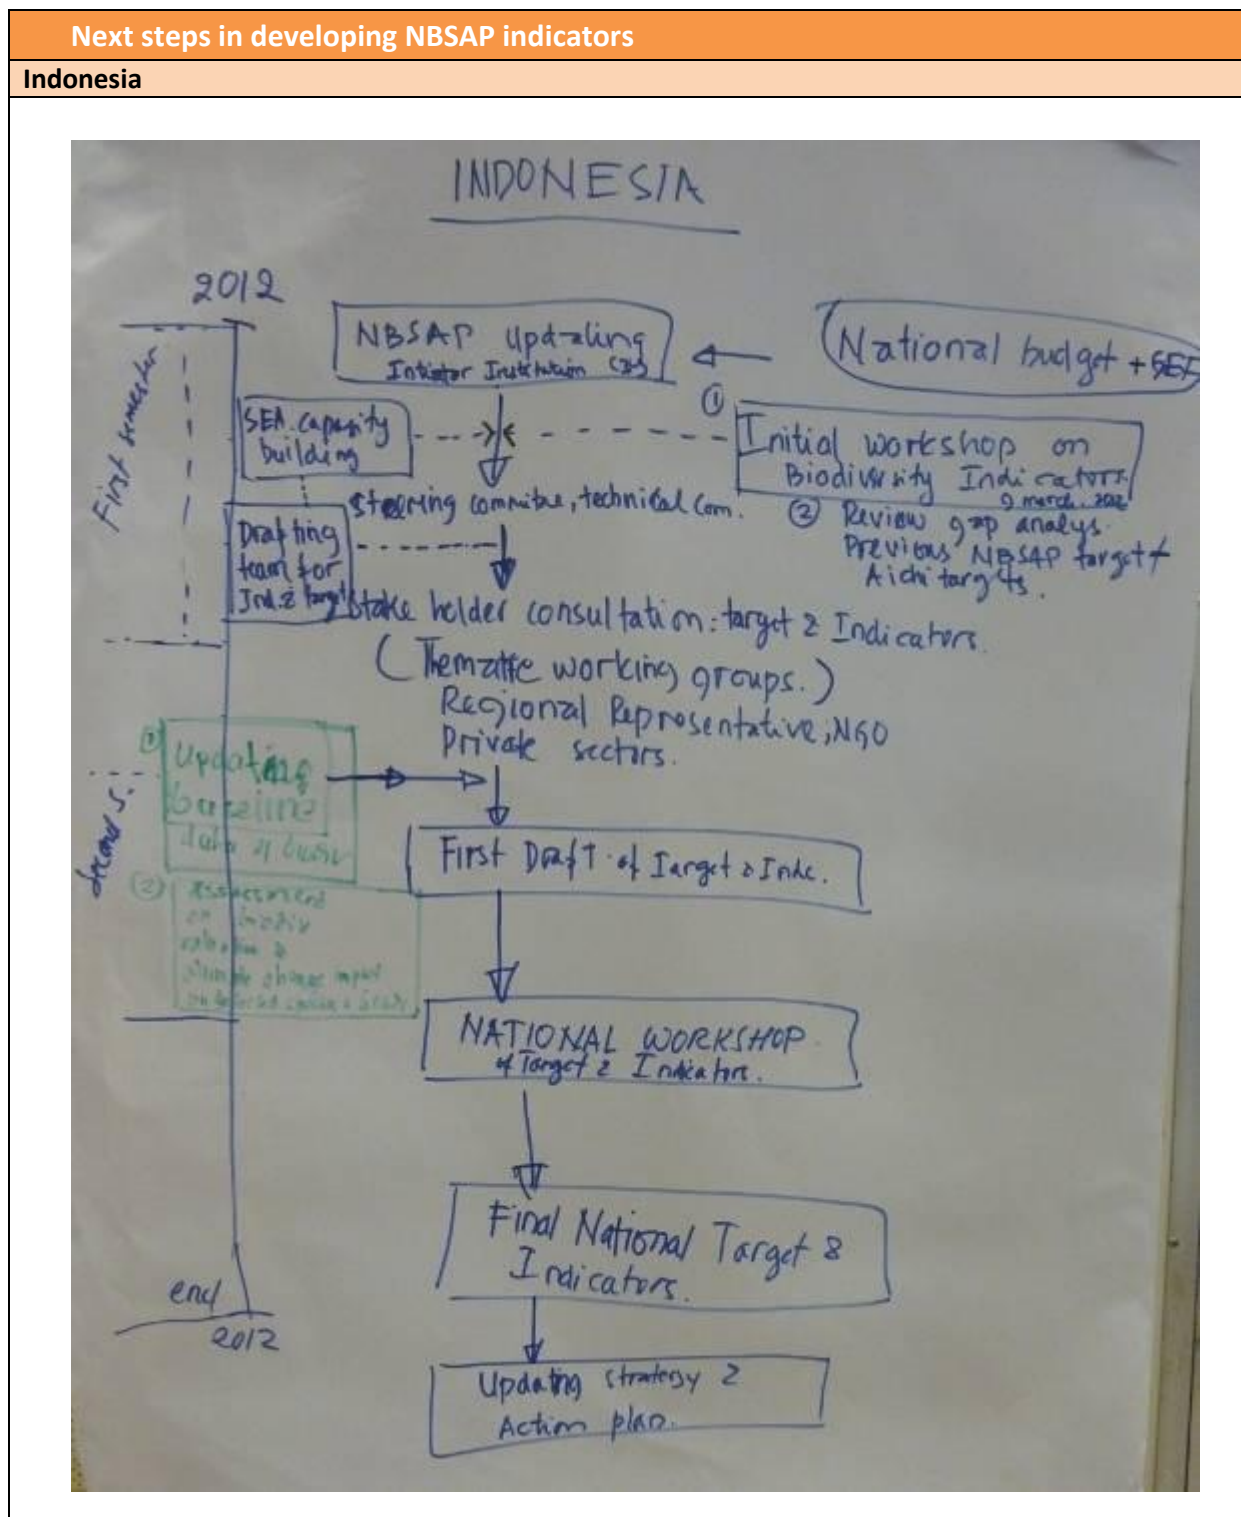 Next steps in developing NBSAP indicators
Indonesia
INDONESIA
2012
First semester
NBSAP Updating
Institution
National budget +
SEA. capacity
building
①
Initial workshop on
Biodiversity Indicators
9 march. 2012
② Review gap analys.
Previous NBSAP target +
Aichi targets.
Steering committee, technical com.
Drafting
team for
Ind. & target
Stake holder consultation: target & Indicators.
(Thematic working groups.)
Regional Representative, NGO
Private sectors.
Second S.
①
Updating
baseline
data of
First Draft of Target & Indic.
②
assessment
on
&
change impact
on selected
NATIONAL WORKSHOP
of Target & Indicators.
Final National Target &
Indicators.
end
2012
Updating strategy &
Action plan.